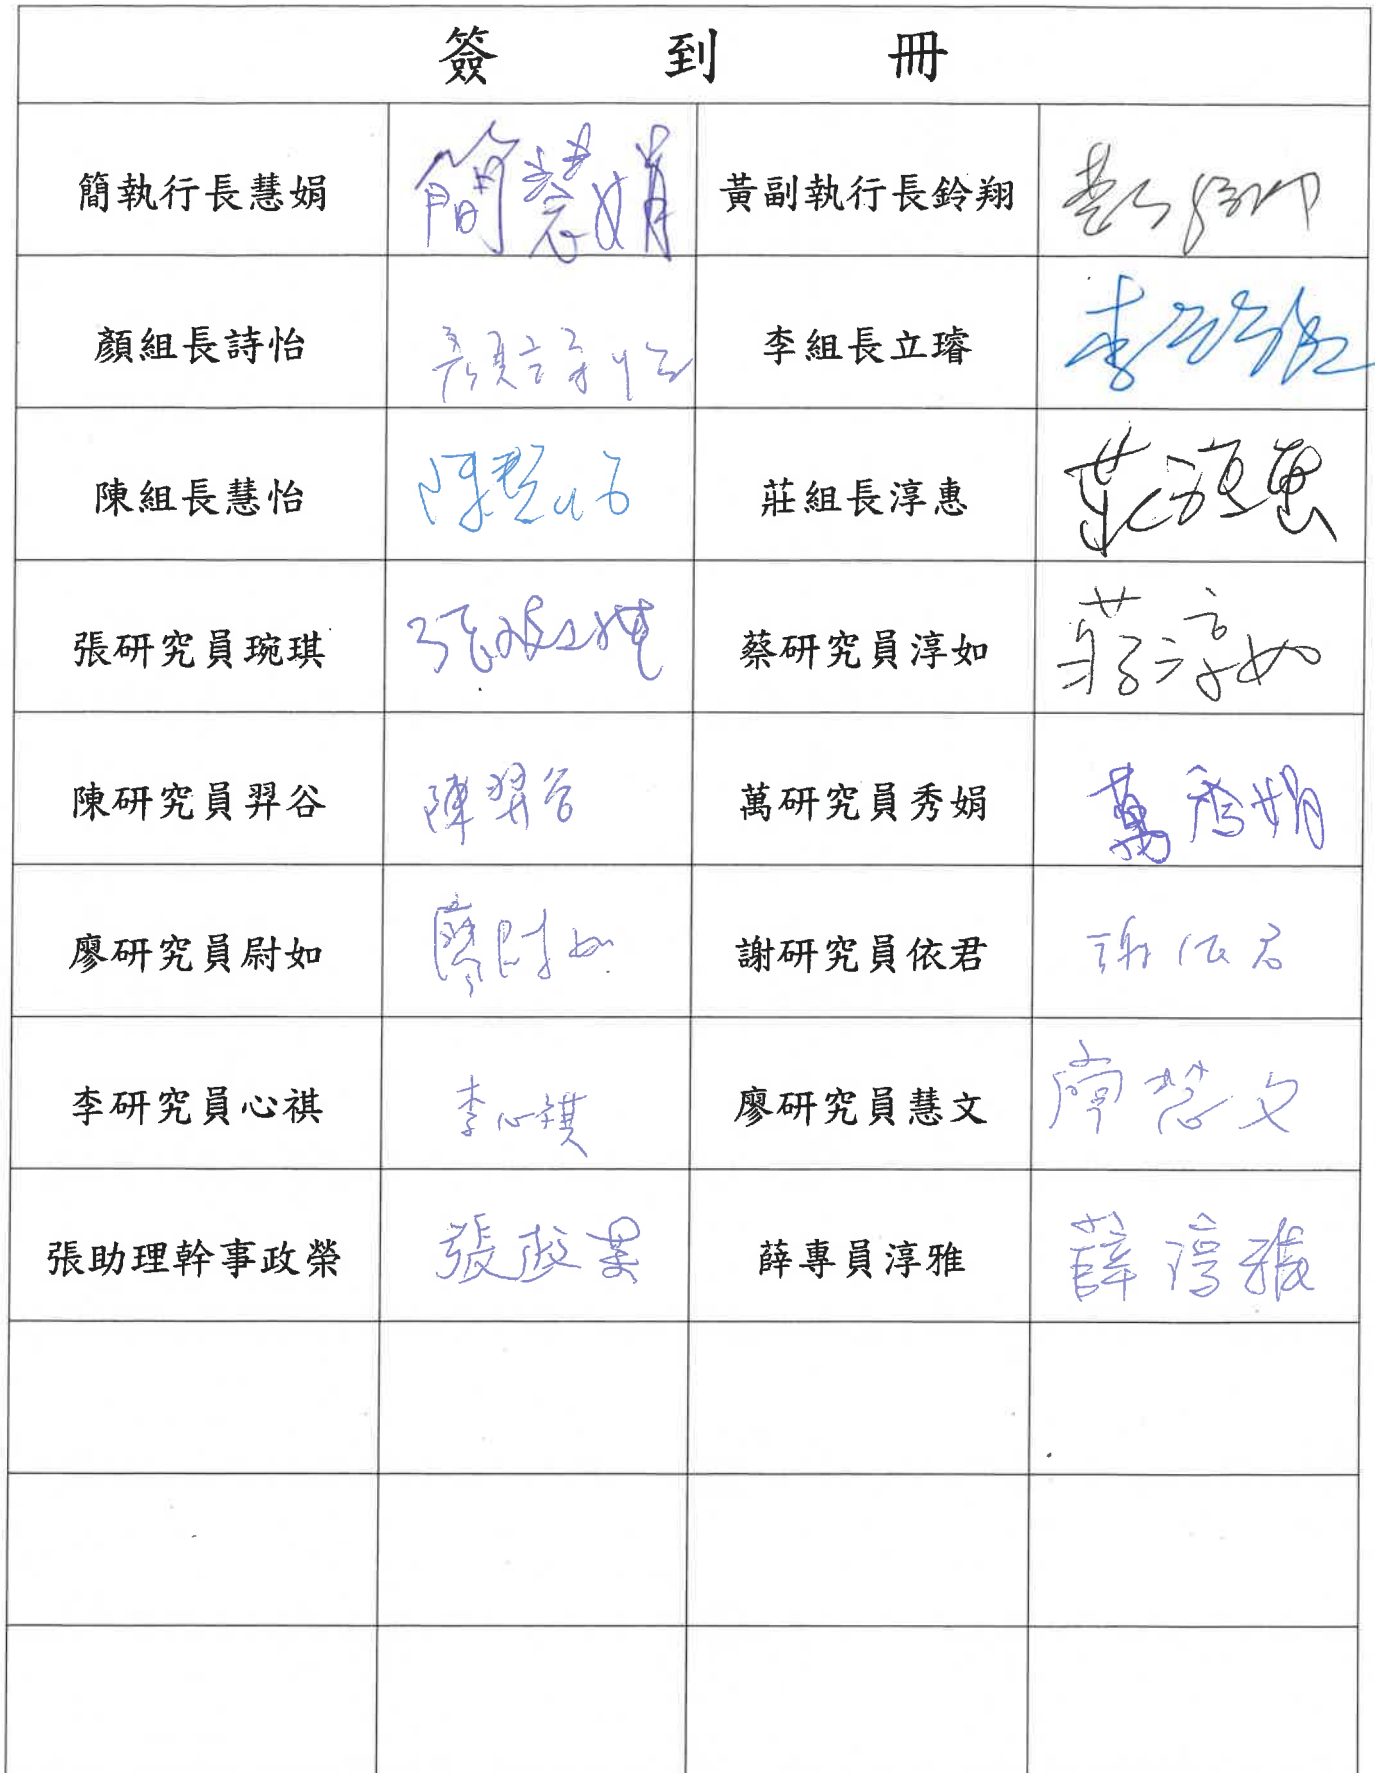 簽到冊
簡執行長慧娟 簡慧娟 黃副執行長鈴翔
顏組長詩怡 顏詩怡 李組長立璿 李
陳組長慧怡 陳慧怡 莊組長淳惠 莊淳惠
張研究員琬琪 張琬琪 蔡研究員淳如 淳如
陳研究員羿谷 陳羿谷 萬研究員秀娟 萬秀娟
廖研究員尉如 廖尉如 謝研究員依君 謝依君
李研究員心祺 李心祺 廖研究員慧文 廖慧文
張助理幹事政榮 張政榮 薛專員淳雅 薛淳雅